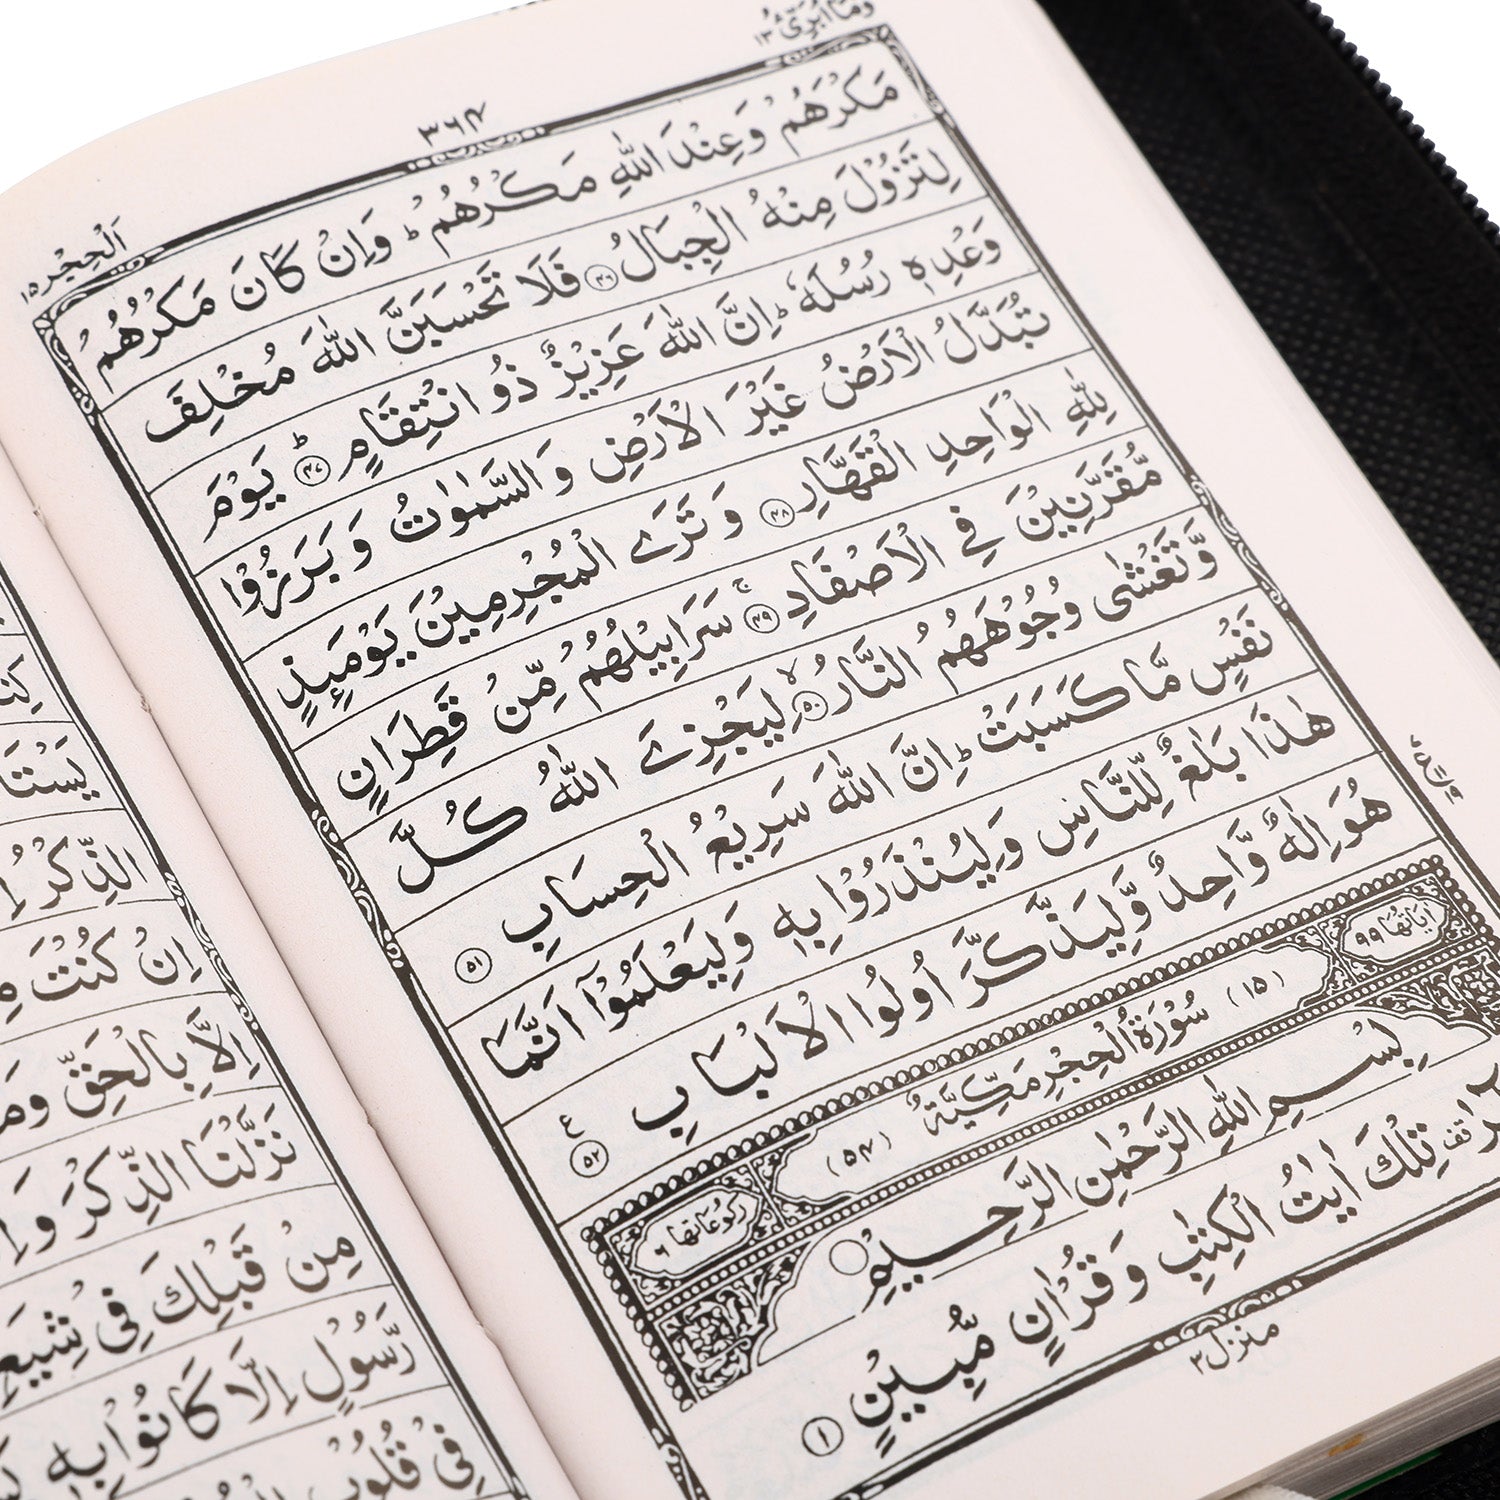 وَمَآ اُبَرِّئُ ١٣
٣٦۴
اَلْحِجْر ١٥
مَكْرَهُمْ وَعِنْدَ اللّٰهِ مَكْرُهُمْ ؕ وَاِنْ كَانَ مَكْرُهُمْ
لِتَزُوْلَ مِنْهُ الْجِبَالُ ۴٦ فَلَا تَحْسَبَنَّ اللّٰهَ مُخْلِفَ
وَعْدِهٖ رُسُلَهٗ ؕ اِنَّ اللّٰهَ عَزِيْزٌ ذُو انْتِقَامٍ ؕ ۴٧ يَوْمَ
تُبَدَّلُ الْاَرْضُ غَيْرَ الْاَرْضِ وَالسَّمٰوٰتُ وَبَرَزُوْا
لِلّٰهِ الْوَاحِدِ الْقَهَّارِ ۴٨ وَتَرَى الْمُجْرِمِيْنَ يَوْمَئِذٍ
مُّقَرَّنِيْنَ فِى الْاَصْفَادِ ۚ ۴٩ سَرَابِيْلُهُمْ مِّنْ قَطِرَانٍ
وَّتَغْشٰى وُجُوْهَهُمُ النَّارُ ۙ ٥٠ لِيَجْزِىَ اللّٰهُ كُلَّ
نَفْسٍ مَّا كَسَبَتْ ؕ اِنَّ اللّٰهَ سَرِيْعُ الْحِسَابِ ٥١
هٰذَا بَلٰغٌ لِّلنَّاسِ وَلِيُنْذَرُوْا بِهٖ وَلِيَعْلَمُوْٓا اَنَّمَا
هُوَ اِلٰهٌ وَّاحِدٌ وَّلِيَذَّكَّرَ اُولُوا الْاَلْبَابِ ٥٢ ع
اٰيَاتُهَا ٩٩
(١٥) سُوْرَةُ الْحِجْرِ مَكِّيَّةٌ (٥۴)
رُكُوْعَاتُهَا ٦
بِسْمِ اللّٰهِ الرَّحْمٰنِ الرَّحِيْمِ
تِلْكَ اٰيٰتُ الْكِتٰبِ وَقُرْاٰنٍ مُّبِيْنٍ ١
منزل ٣
يَسْتَا
الذِّكْرُ
اِنْ كُنْتَ
اِلَّا بِالْحَقِّ
نَزَّلْنَا الذِّكْرَ
مِنْ قَبْلِكَ فِىْ
رَّسُوْلٍ اِلَّا كَانُوْا بِهٖ
فِىْ قُلُوْبِ